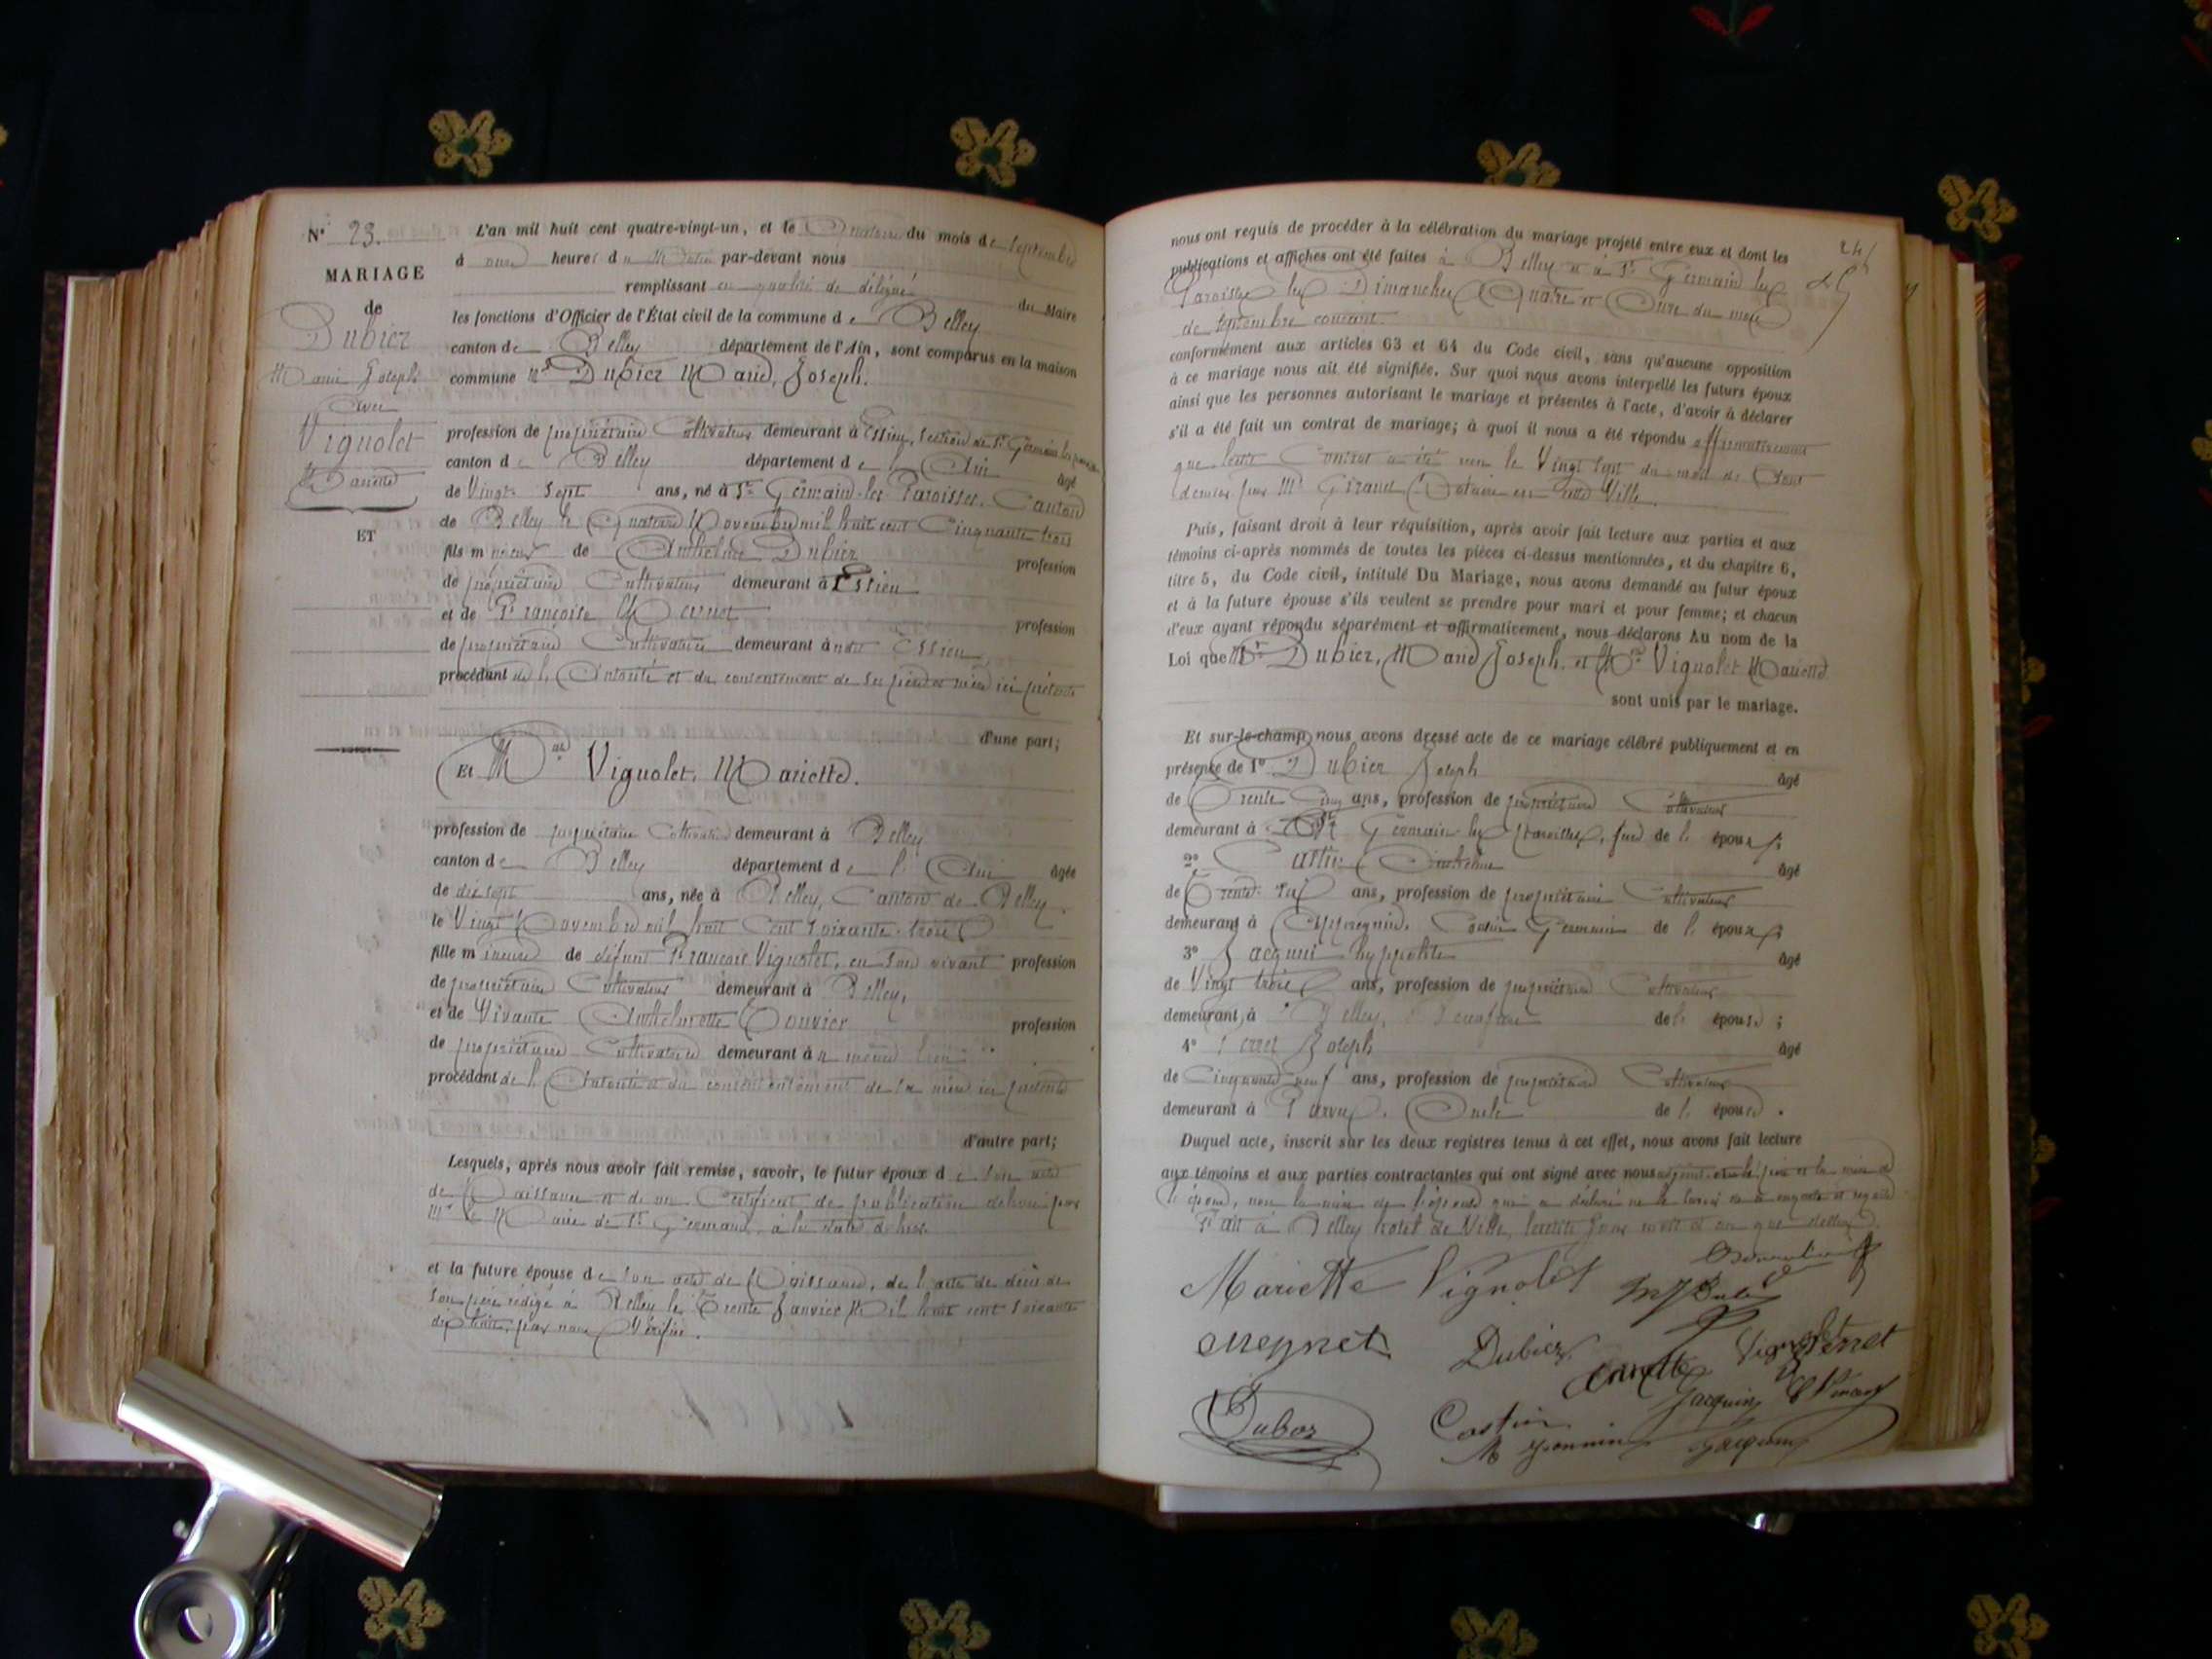 N° 23.
MARIAGE
de
Dubiez
Marie Joseph
avec
Vignolet
Mariette
ET
L'an mil huit cent quatre-vingt-un, et le du mois de septembre
à onze heures du Matin par-devant nous
remplissant en qualité de délégué du Maire
les fonctions d'Officier de l'État civil de la commune de Belley
canton de Belley département de l'Ain, sont comparus en la maison
commune Mr Dubiez Marie, Joseph.
profession de propriétaire Cultivateur demeurant à Essieu, section de St Germain les
canton de Belley département de l'Ain âgé
de Vingt Sept ans, né à St Germain-les-Paroisses, Canton
de Belley le Quatorze Novembre mil huit cent Cinquante trois
fils majeur de Anthelme Dubiez profession
de propriétaire Cultivateur demeurant à Essieu
et de Françoise profession
de propriétaire Cultivatrice demeurant à Essieu
procédant de l'Autorité et du consentement de ses père et mère ici présents
d'une part;
Et Mlle Vignolet, Mariette.
profession de propriétaire demeurant à Belley
canton de Belley département de l'Ain âgée
de dix sept ans, née à Belley, Canton de Belley
le Vingt Novembre mil huit Cent soixante-trois
fille mineure de défunt François Vignolet, en son vivant profession
de propriétaire Cultivateur demeurant à Belley,
et de Vivante Anthelmette Bouvier profession
de propriétaire Cultivatrice demeurant à même lieu
procédant de l'Autorité et du consentement de sa mère ici présente
d'autre part;
Lesquels, après nous avoir fait remise, savoir, le futur époux de son acte
de Naissance et de un Certificat de publication délivré par
Mr le Maire de St Germain, à la date
et la future épouse de son acte de Naissance, de l'acte de décès de
son père rédigé à Belley le Trente Janvier Mil huit cent soixante
par nous Vérifié.
24
nous ont requis de procéder à la célébration du mariage projeté entre eux et dont les
publications et affiches ont été faites à Belley et à St Germain les
Paroisses les Dimanches Quatre et Onze du mois
de septembre courant.
conformément aux articles 63 et 64 du Code civil, sans qu'aucune opposition
à ce mariage nous ait été signifiée. Sur quoi nous avons interpellé les futurs époux
ainsi que les personnes autorisant le mariage et présentes à l'acte, d'avoir à déclarer
s'il a été fait un contrat de mariage; à quoi il nous a été répondu affirmativement
que Contrat a été le Vingt Sept du mois de Août
dernier par Me Notaire en cette Ville.
Puis, faisant droit à leur réquisition, après avoir fait lecture aux parties et aux
témoins ci-après nommés de toutes les pièces ci-dessus mentionnées, et du chapitre 6,
titre 5, du Code civil, intitulé Du Mariage, nous avons demandé au futur époux
et à la future épouse s'ils veulent se prendre pour mari et pour femme; et chacun
d'eux ayant répondu séparément et affirmativement, nous déclarons Au nom de la
Loi que Mr Dubiez, Marie Joseph, et Mlle Vignolet Mariette
sont unis par le mariage.
Et sur-le-champ nous avons dressé acte de ce mariage célébré publiquement et en
présence de 1° Dubiez Joseph âgé
de Trente Cinq ans, profession de propriétaire Cultivateur
demeurant à St Germain les Paroisses, de l'époux;
2° Anthelme âgé
de Trente six ans, profession de propriétaire Cultivateur
demeurant à Cousin Germain de l'époux;
3° Jacquin hyppolite âgé
de Vingt trois ans, profession de propriétaire Cultivateur
demeurant à Belley, de l'épouse;
4° Perret Joseph âgé
de Cinquante neuf ans, profession de propriétaire Cultivateur
demeurant à Oncle de l'épouse.
Duquel acte, inscrit sur les deux registres tenus à cet effet, nous avons fait lecture
aux témoins et aux parties contractantes qui ont signé avec nous le père et la mère de
l'époux, non la mère de l'épouse qui a déclaré ne le savoir
Fait à Belley hotel de Ville, jour mois et an que dessus.
Mariette Vignolet
Dubiez
Vignolet
Perret
Jacquin